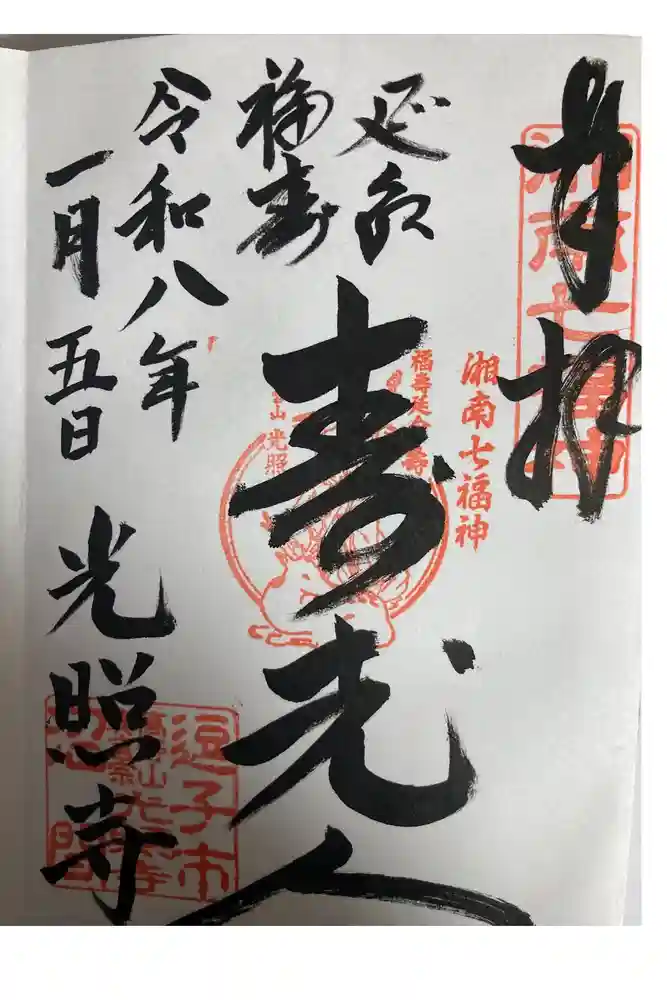 奉拝
湘南七福神
湘南七福神
延命
福寿
福壽延命壽
寿老人
光照
令和八年
一月五日
光照寺
逗子市
沼間